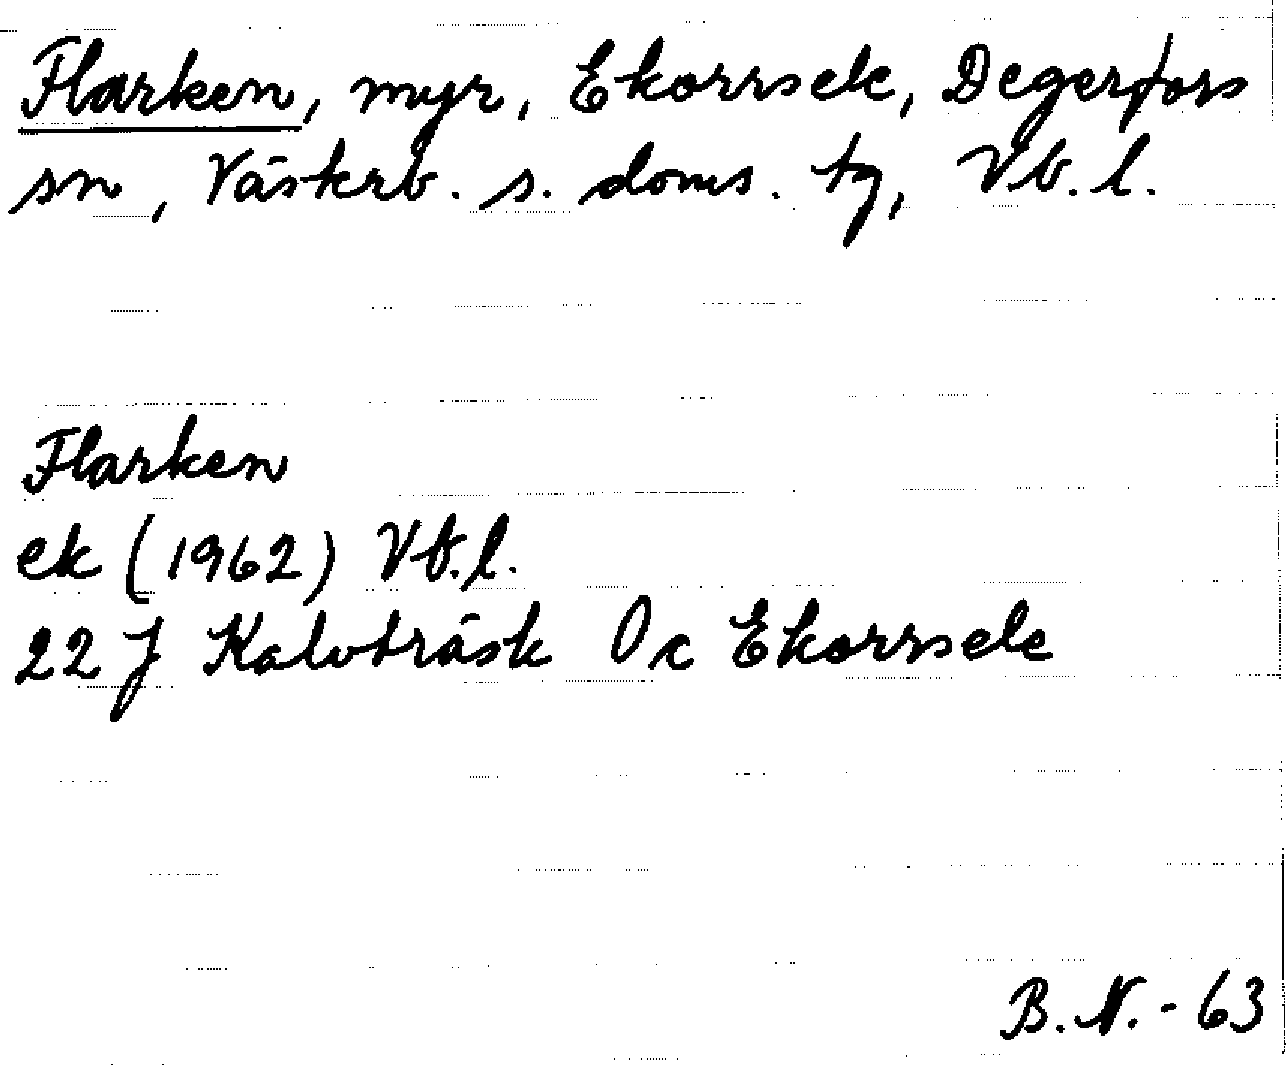 Flarken, myr, Ekorrsele, Degerfors
sn, Västerb. s. doms. tg, Vb. l.
Flarken
ek (1962) Vb.l.
22 J Kalvträsk 0c Ekorrsele
B.N.-63